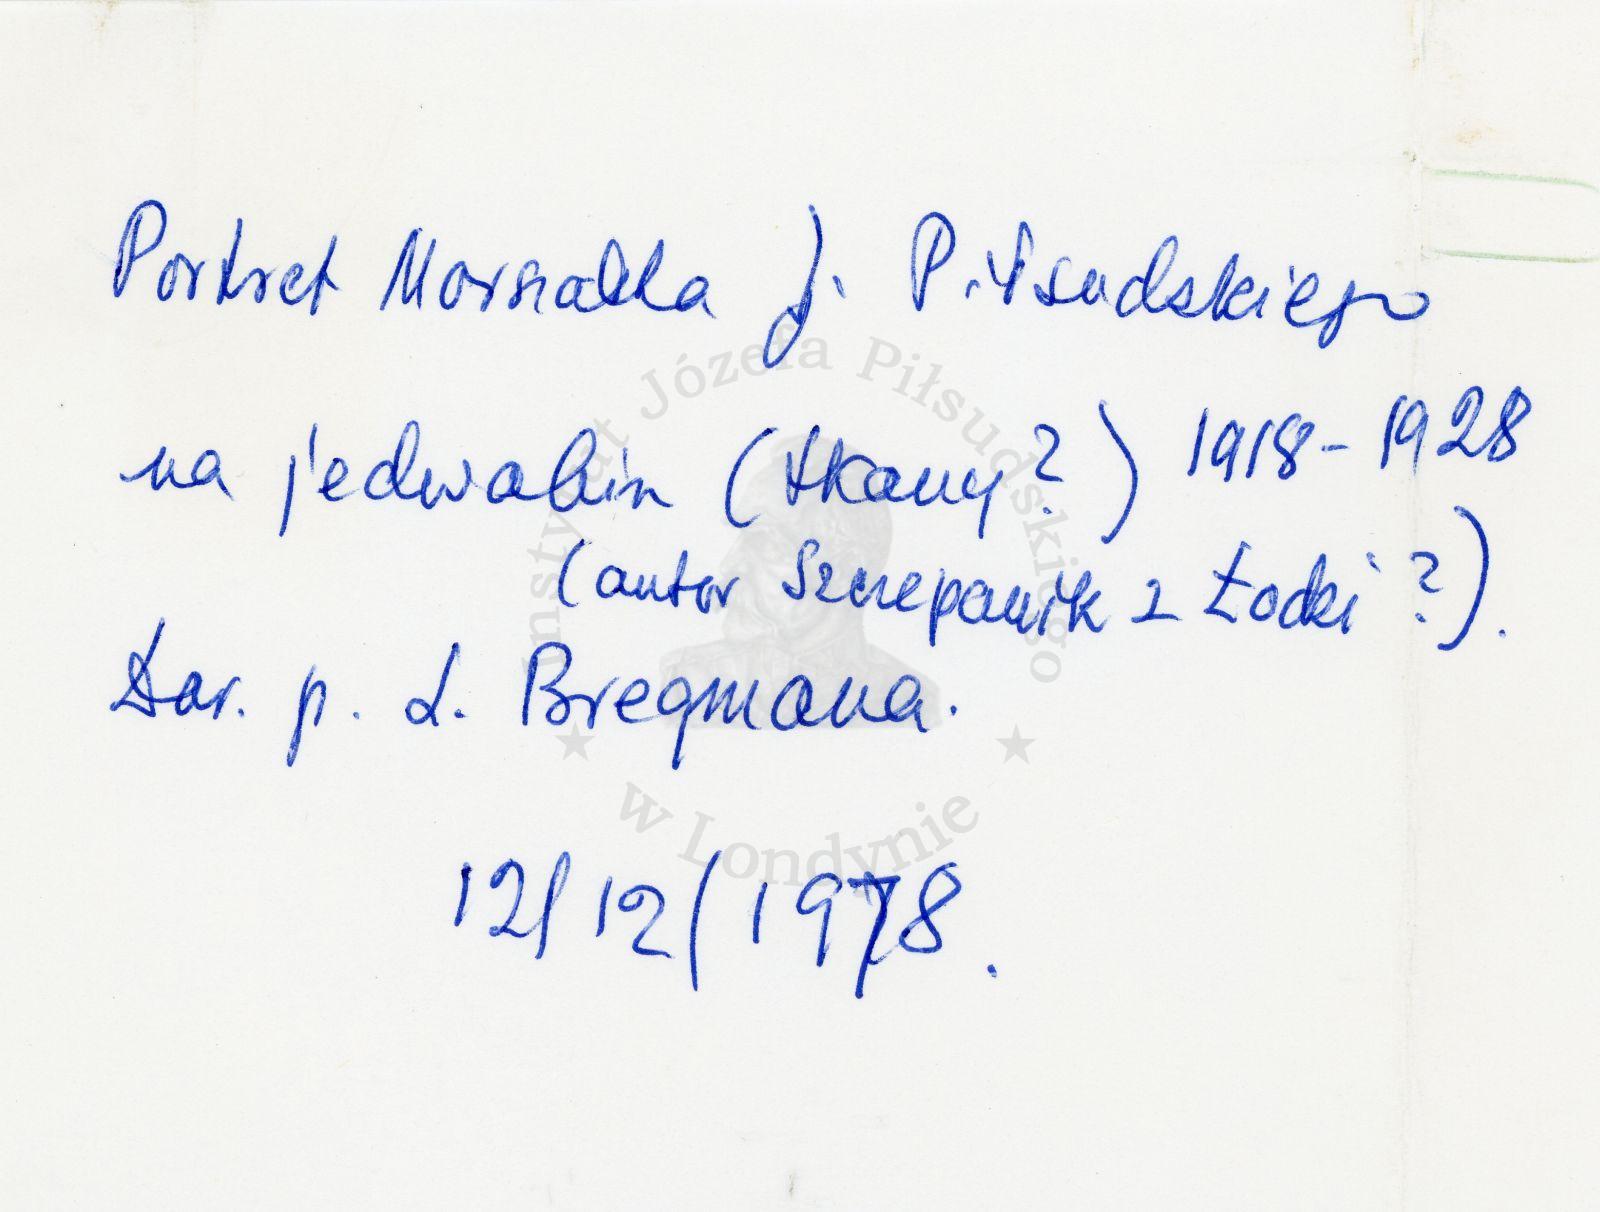 Portret Marszałka J. Piłsudskiego
na jedwabiu (tkany?) 1918-1928
(autor Szczepanik z Łodzi?).
Dar. p. L. Bregmana.
12/12/1978.
Instytut Józefa Piłsudskiego
w Londynie